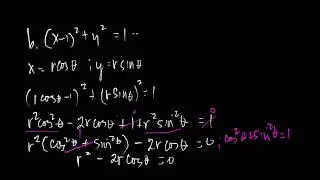 b. (x-1)² + y² = 1 ..
x = r cosθ ; y = r sinθ
(r cosθ - 1)² + (r sinθ)² = 1
r² cos²θ - 2r cosθ + 1 + r² sin²θ = 1
r² (cos²θ + sin²θ) - 2r cosθ = 0 ; cos²θ + sin²θ = 1
r² - 2r cosθ = 0